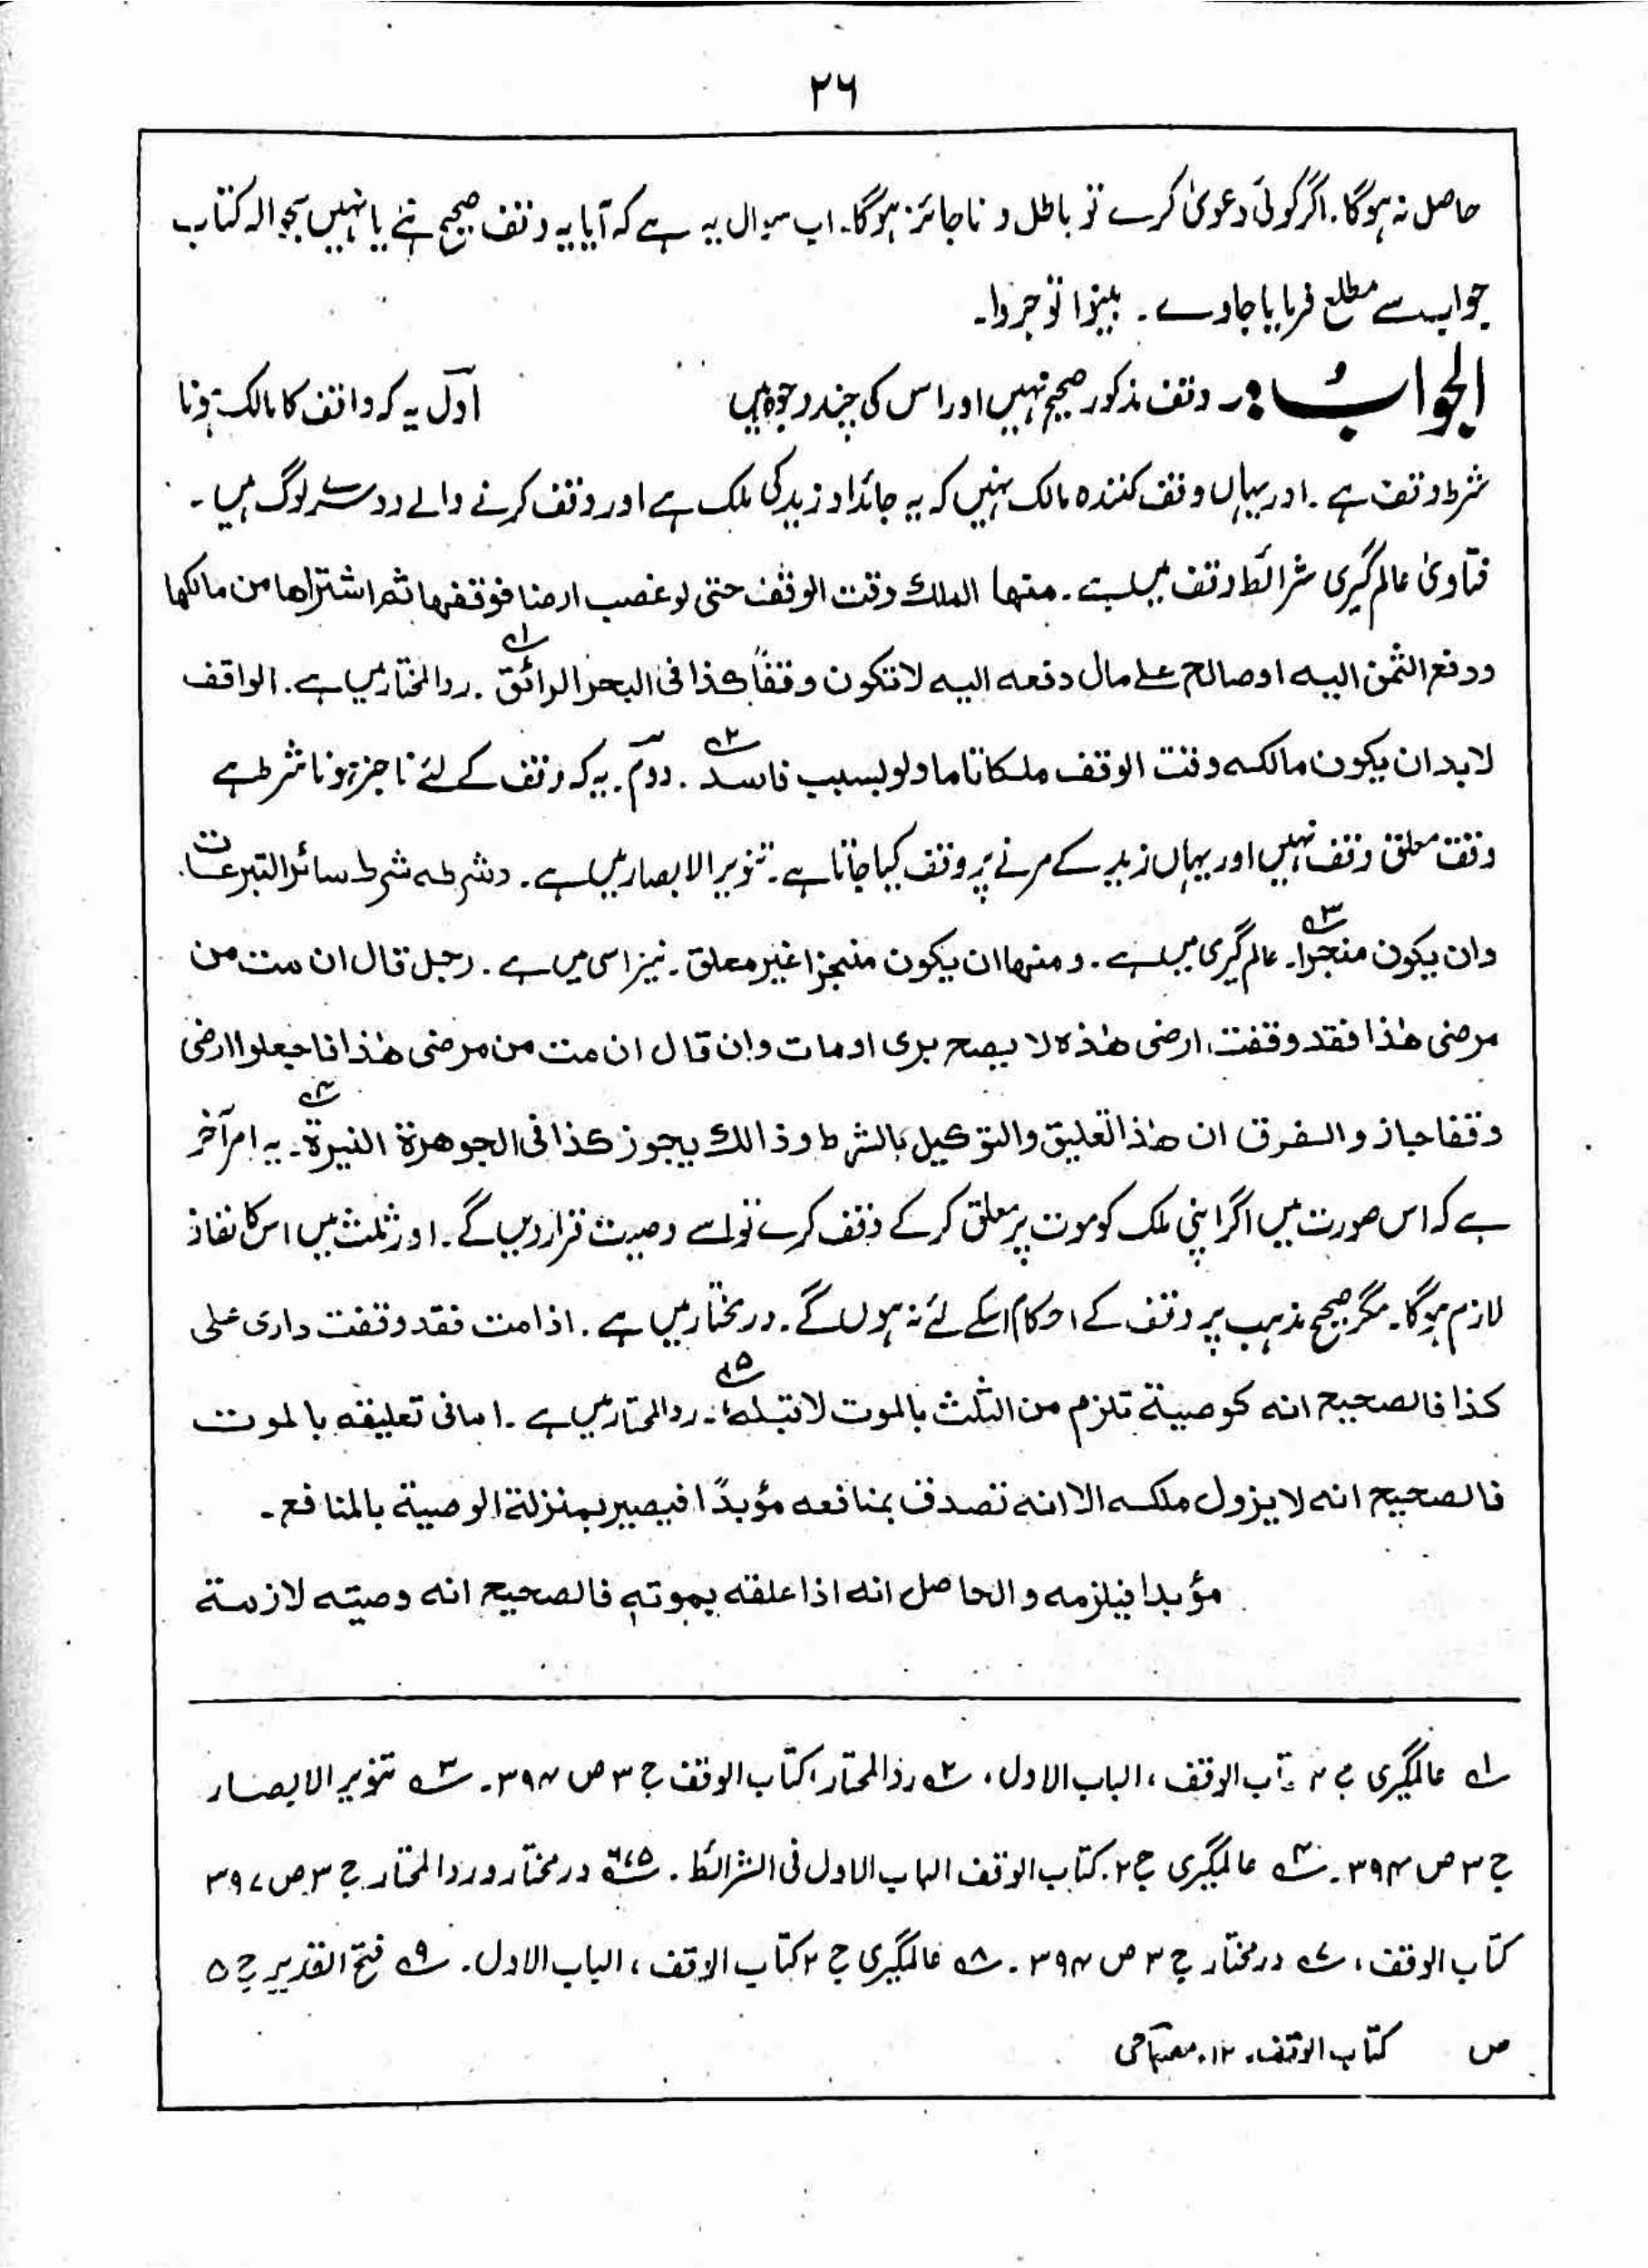 ۲۶
حاصل نہ ہوگا۔ اگر کوئی دعویٰ کرے تو باطل و ناجائز ہوگا۔ اب سوال یہ ہے کہ آیا یہ وقف صحیح ہے یا نہیں بحوالہ کتاب
جواب سے مطلع فرمایا جاوے۔ بینوا توجروا۔
الجوابُ:۔ وقف مذکور صحیح نہیں اور اس کی چند وجوہ ہیں اوّل یہ کہ واقف کا مالک ہونا
شرط وقف ہے۔ اور یہاں وقف کنندہ مالک نہیں کہ یہ جائداد زید کی ملک ہے اور وقف کرنے والے دوسرے لوگ ہیں۔
فتاویٰ عالم گیری شرائط وقف میں ہے۔ منها الملك وقت الوقف حتی لو غصب ارضا فوقفها ثم اشتراها من مالكها
ودفع الثمن الیه او صالح علے مال دفعه الیه لا تكون وقفاً كذا فی البحر الرائق ۱؎۔ ردالمختار میں ہے۔ الواقف
لابد ان یكون مالكه وقت الوقف ملكا تاما ولو بسبب فاسد ۲؎۔ دوم۔ یہ کہ وقف کے لئے ناجز ہونا شرط ہے
وقف معلق وقف نہیں اور یہاں زید کے مرنے پر وقف کیا جاتا ہے۔ تنویر الابصار میں ہے۔ وشرطه شرط سائر التبرعات۔
وان یكون منجزا ۳؎۔ عالم گیری میں ہے۔ ومنها ان یكون منجزا غیر معلق۔ نیز اسی میں ہے۔ رجل قال ان مت من
مرضی هٰذا فقد وقفت ارضی هٰذه لا یصح بری او مات وان قال ان مت من مرضی هٰذا فاجعلوا ارضی
وقفا جاز والفرق ان هٰذا تعلیق والتوكیل بالشرط وذالك یجوز كذا فی الجوهرة النیرة ۴؎۔ یہ امر آخر
ہے کہ اس صورت میں اگر اپنی ملک کو موت پر معلق کر کے وقف کرے تو اسے وصیت قرار دیں گے۔ اور ثلث میں اس کا نفاذ
لازم ہوگا۔ مگر صحیح مذہب پر وقف کے احکام اسکے لئے نہ ہوں گے۔ درمختار میں ہے۔ اذا مت فقد وقفت داری علی
كذا فالصحیح انه كوصیة تلزم من الثلث بالموت لا قبله ۵؎۔ ردالمحتار میں ہے۔ اما فی تعلیقه بالموت
فالصحیح انه لا یزول ملكه الا انه تصدق بمنافعه مؤبدًا فیصیر بمنزلة الوصیة بالمنافع۔
مؤبدا فیلزمه والحاصل انه اذا علقه بموته فالصحیح انه وصیته لازمة
۱؎ عالمگیری ج ۲ کتاب الوقف، الباب الاول، ۲؎ ردالمحتار، کتاب الوقف ج ۳ ص ۳۹۴۔ ۳؎ تنویر الابصار
ج ۳ ص ۳۹۴۔ ۴؎ عالمگیری ج ۲۔ کتاب الوقف الباب الاول فی الشرائط۔ ۵، ۶؎ درمختار وردالمحتار ج ۳۔ ص ۳۹۷
کتاب الوقف، ۷؎ درمختار ج ۳ ص ۳۹۴۔ ۸؎ عالمگیری ج ۲ کتاب الوقف، الباب الاول۔ ۹؎ فتح القدیر ج ۵
ص کتاب الوقف۔ ۱۲۔ مصباحی